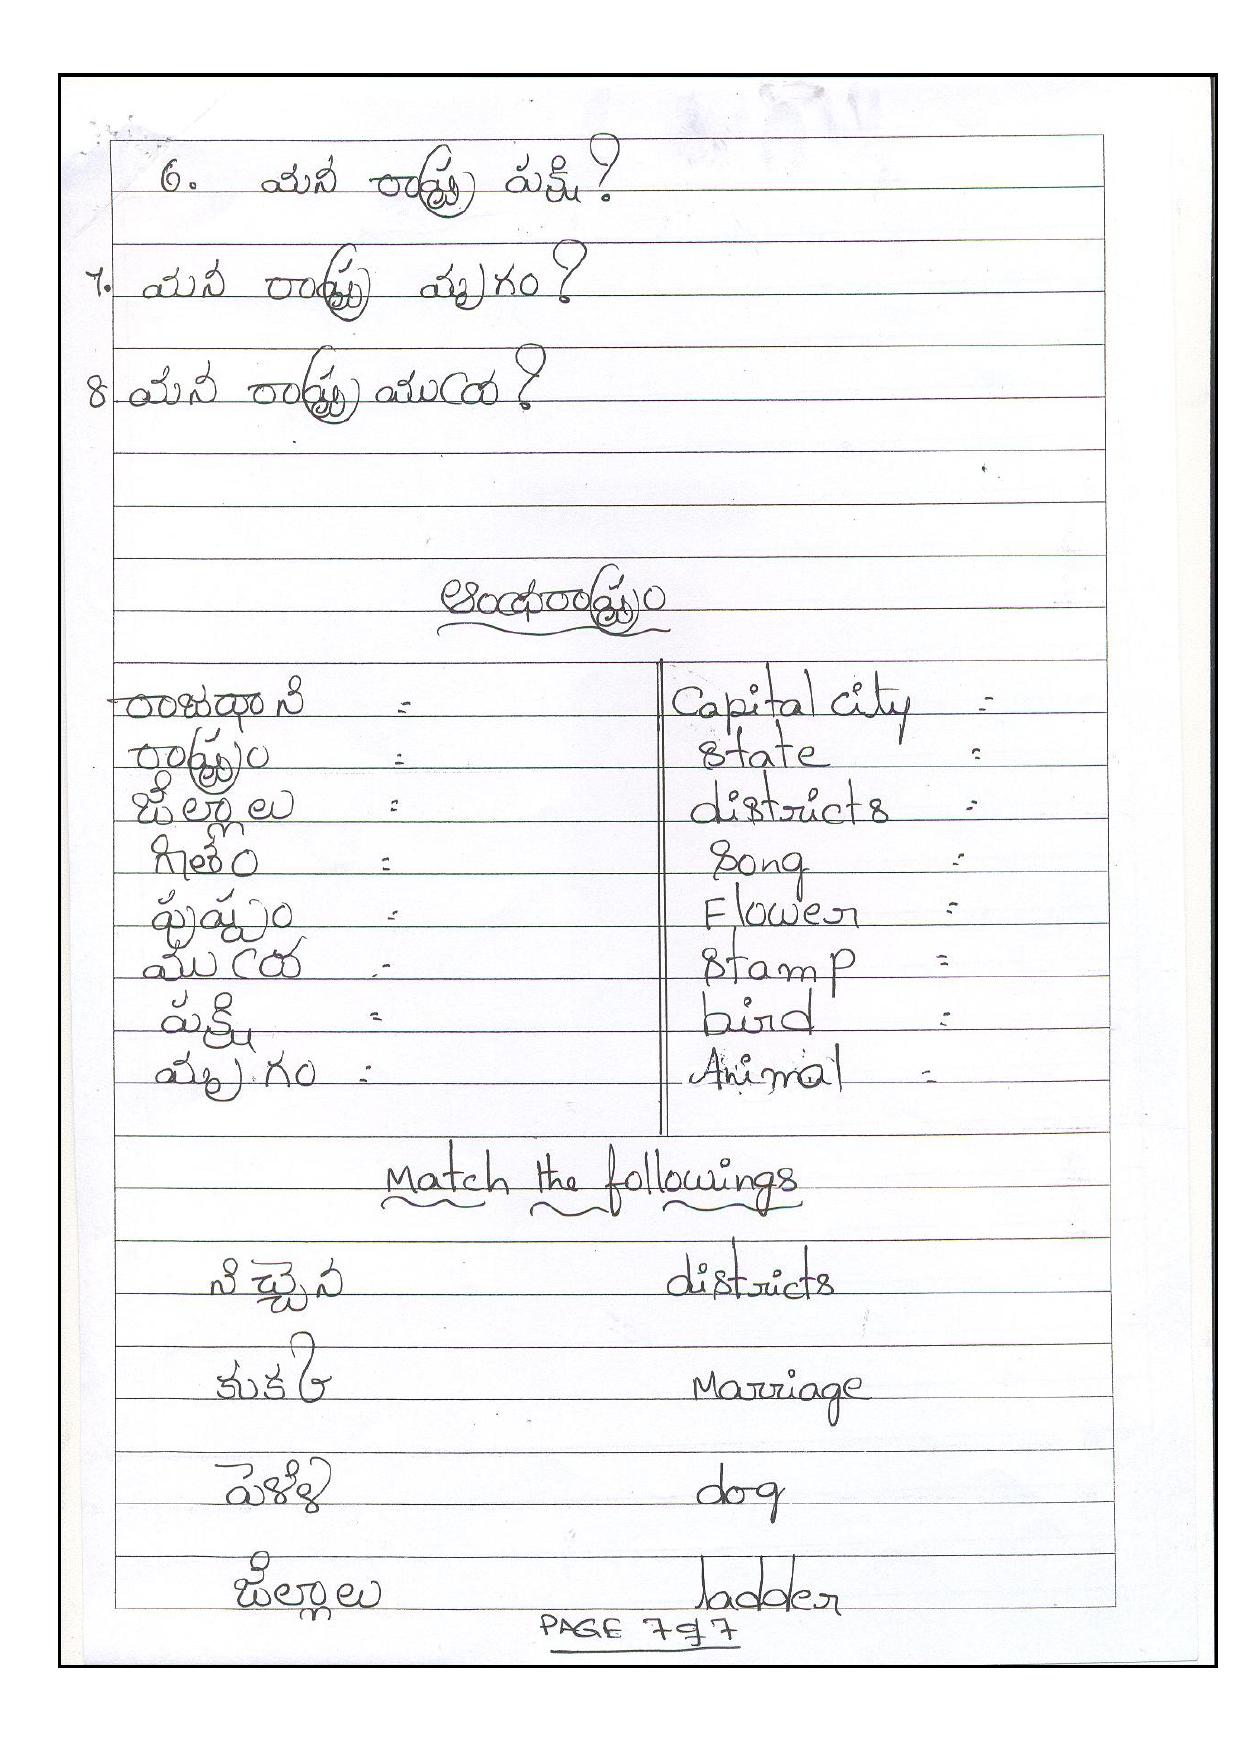 6. మన రాష్ట్ర పక్షి?
7. మన రాష్ట్ర మృగం?
8 మన రాష్ట్ర ముద్ర?
ఆంధ్రరాష్ట్రం
రాజధాని = Capital city =
రాష్ట్రం = state =
జిల్లాలు = districts =
గీతం = Song =
పుష్పం = Flower =
ముద్ర = stamp =
పక్షి = bird =
మృగం = Animal =
Match the followings
నిచ్చెన districts
కుక్క Marriage
పెళ్ళి dog
జిల్లాలు ladder
PAGE 7 of 7